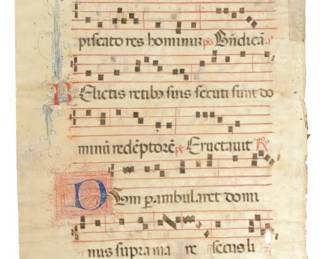 piscatores hominū ps Bn̄dicā
Relictis retibꝫ suis secuti sunt do
minū redēptorē ps Eructauit
Dum ꝑambularet domi
nus supra ma re secus li